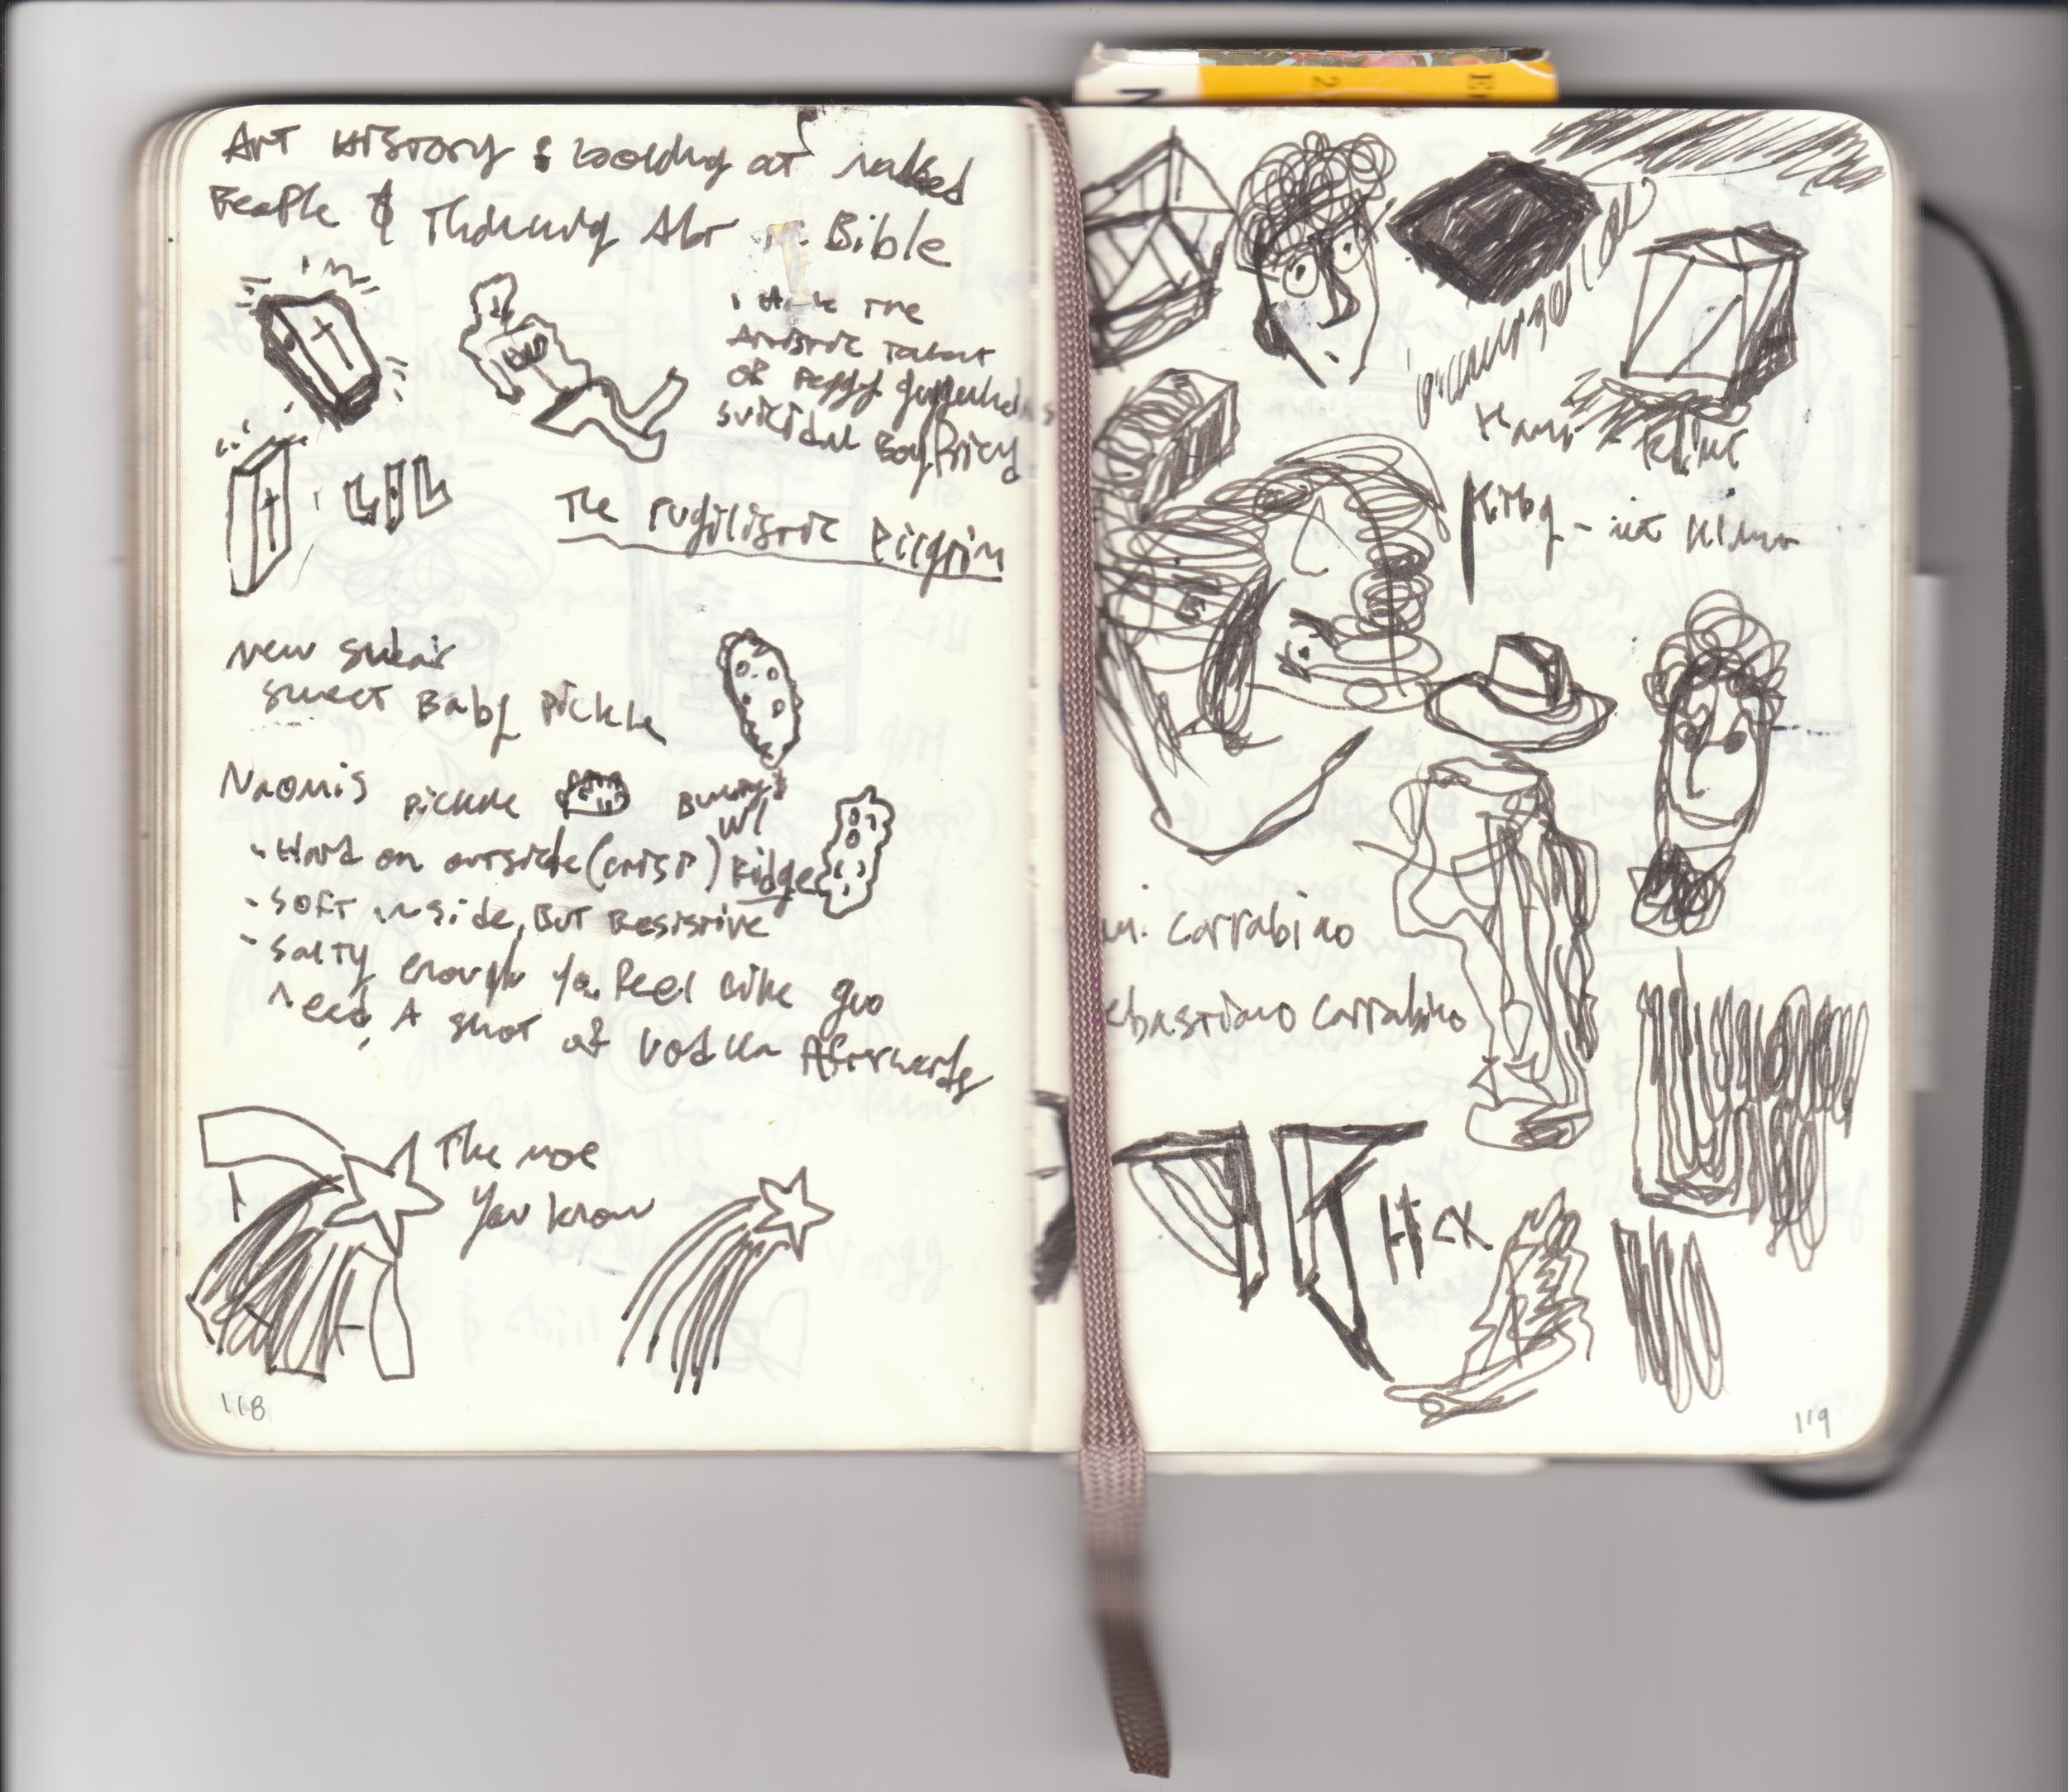 Art History & Looking at naked
People & Thinking Abt Bible
I have the
Artistic Talent
of Peggy Guggenheim's
suicidal Boyfriend
LIL
The Pugilistic Pilgrim
New Swear
Sweet Baby Pickle
Naomis Pickle Bumps
w/
- Hard on outside (crisp) Ridges
- Soft inside, But Resistive
- Salty enough you feel like you
need A shot of Vodka Afterwards
The moe
You know
118
Kirby - 
M. Carrabino
ebastiano Carrabino
Hex
119